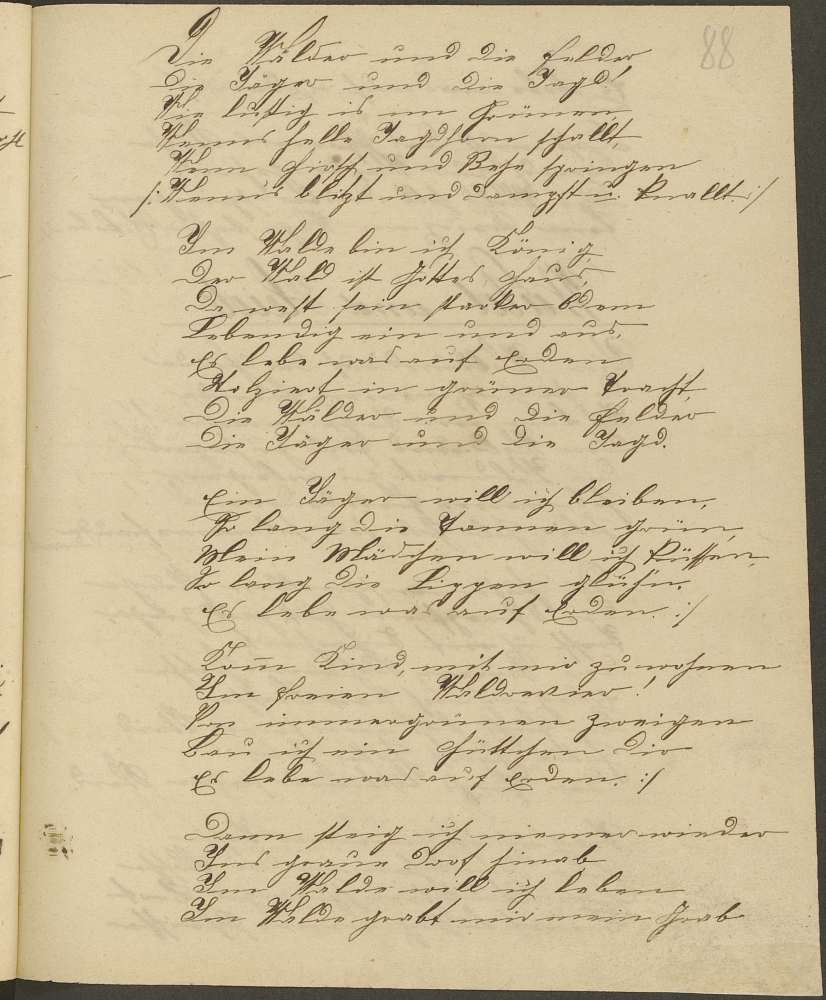 88
Die Wälder und die Felder
Die Jäger und die Jagd!
Wie lustig is im Grünen,
Wenns helle Jagdhorn schallt,
Wenn Hirsch und Rehe springen
/: Wenns blitzt und dampft u. knallt. :/
Im Walde bin ich König,
Der Wald ist Gottes Haus,
Da weht sein starker Odem
Lebendig ein und aus,
Es lebe was auf Erden
Stolziert in grüner Tracht,
Die Wälder und die Felder
Die Jäger und die Jagd.
Ein Jäger will ich bleiben,
So lang die Tannen grün,
Mein Mädchen will ich küssen,
So lang die Lippen glühn.
Es lebe was auf Erden. :/
Kom̅ Kind, mit mir zu wohnen
Im freien Waldrevier!
Von immergrünen Zweigen
Bau ich ein Hüttchen dir
Es lebe was auf Erden. :/
Dann steig ich nimmer wieder
Ins graue Dorf hinab
Im Walde will ich leben
Im Walde grabt mir mein Grab